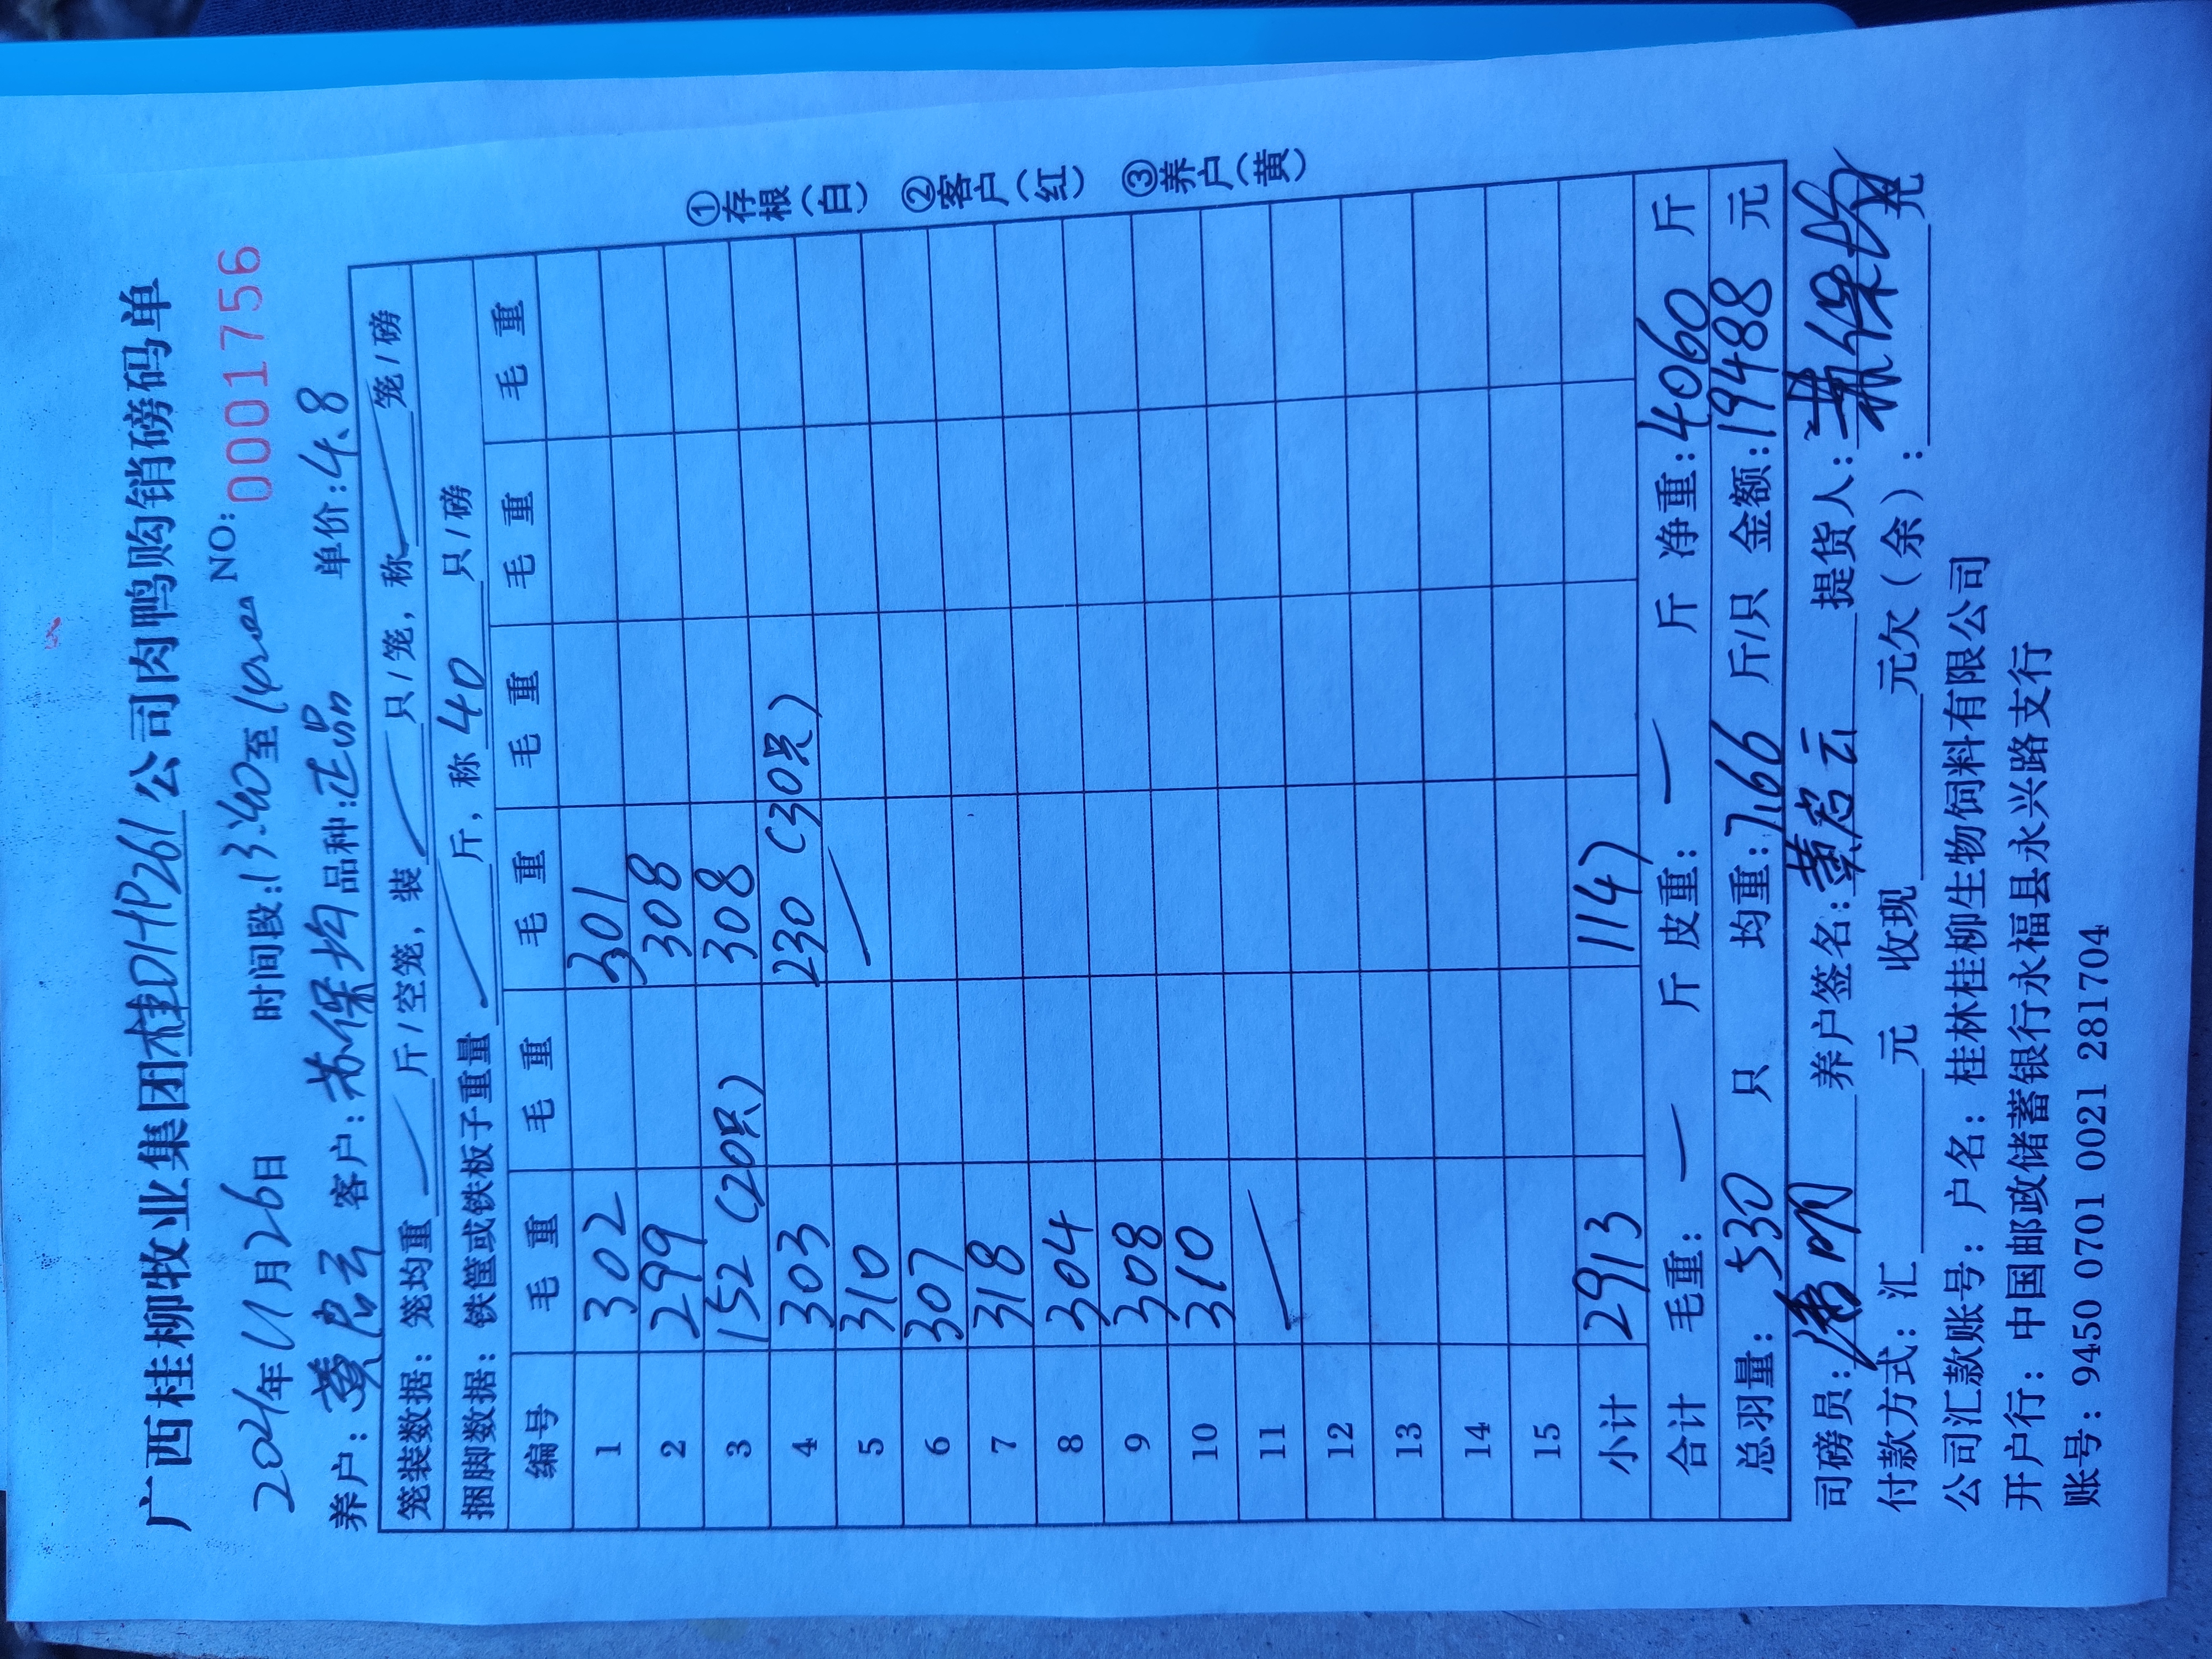 广西桂柳牧业集团桂DHP261公司肉鸭购销磅码单
2024年11月26日 时间段:13:40至 NO:0001756
养户: 客户:苏保均 品种:正品 单价:4.8
笼装数据: 笼均重 斤/空笼, 装 只/笼, 称 笼/磅
捆脚数据: 铁筐或铁板子重量 斤, 称 40 只/磅
编号 毛重 毛重 毛重 毛重 毛重 毛重
1 302 301
2 299 308
3 152 (20只) 308
4 303 230 (30只)
5 310
6 307
7 318
8 304
9 308
10 310
11
12
13
14
15
小计 2913 1147
合计 毛重: 一 斤 皮重: 一 斤 净重:4060 斤
总羽量: 530 只 均重:7.66 斤/只 金额:19488 元
司磅员: 养户签名: 提货人:
付款方式: 汇 元 收现 元欠(余): 元
公司汇款账号: 户名: 桂林桂柳生物饲料有限公司
开户行: 中国邮政储蓄银行永福县永兴路支行
账号: 9450 0701 0021 281704
①存根(白) ②客户(红) ③养户(黄)